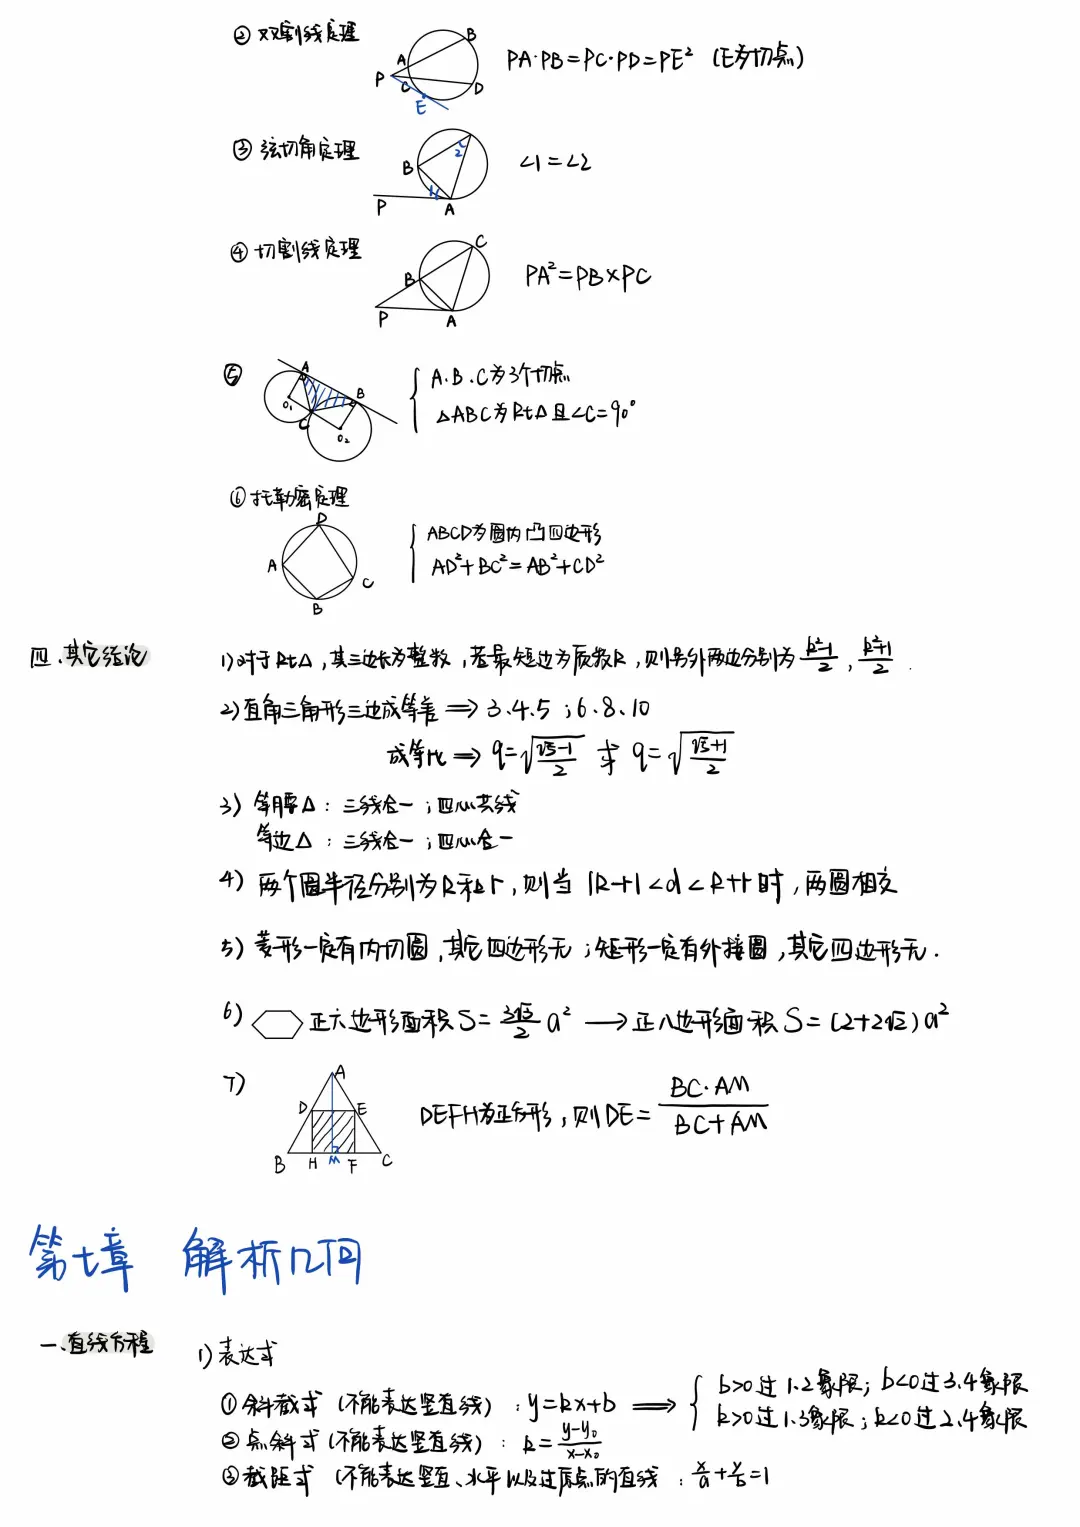 ② 双割线定理
A B P C D E
PA·PB=PC·PD=PE² (E为切点)
③ 弦切角定理
B 2 1 P A
∠1=∠2
④ 切割线定理
C B P A
PA²=PB×PC
⑤
A B O₁ C O₂
A.B.C为3个切点
△ABC为Rt△且∠C=90°
⑥ 托勒密定理
D A C B
ABCD为圆内凸四边形
AD²+BC²=AB²+CD²
四、其它结论
1) 对于Rt△,其三边长为整数,若最短边为质数k,则另外两边分别为 (k²-1)/2, (k²+1)/2.
2) 直角三角形三边成等差 ⟹ 3.4.5 ;6.8.10
成等比 ⟹ q=√((√5-1)/2) 或 q=√((√5+1)/2)
3) 等腰△:三线合一;四心共线
等边△:三线合一;四心合一
4) 两个圆半径分别为R和r,则当 |R-r|<d<R+r时,两圆相交
5) 菱形一定有内切圆,其它四边形无;矩形一定有外接圆,其它四边形无.
6) 正六边形面积S=(3√3/2)a² ⟶ 正八边形面积S=(2+2√2)a²
7)
A D E B H M F C
DEFH为正方形,则DE=(BC·AM)/(BC+AM)
第七章 解析几何
一、直线方程
1) 表达式
① 斜截式 (不能表达竖直线) :y=kx+b ⟹ b>0过1.2象限;b<0过3.4象限
k>0过1.3象限;k<0过2.4象限
② 点斜式 (不能表达竖直线) :k=(y-y₀)/(x-x₀)
③ 截距式 (不能表达竖直、水平以及过原点的直线 :x/a+y/b=1